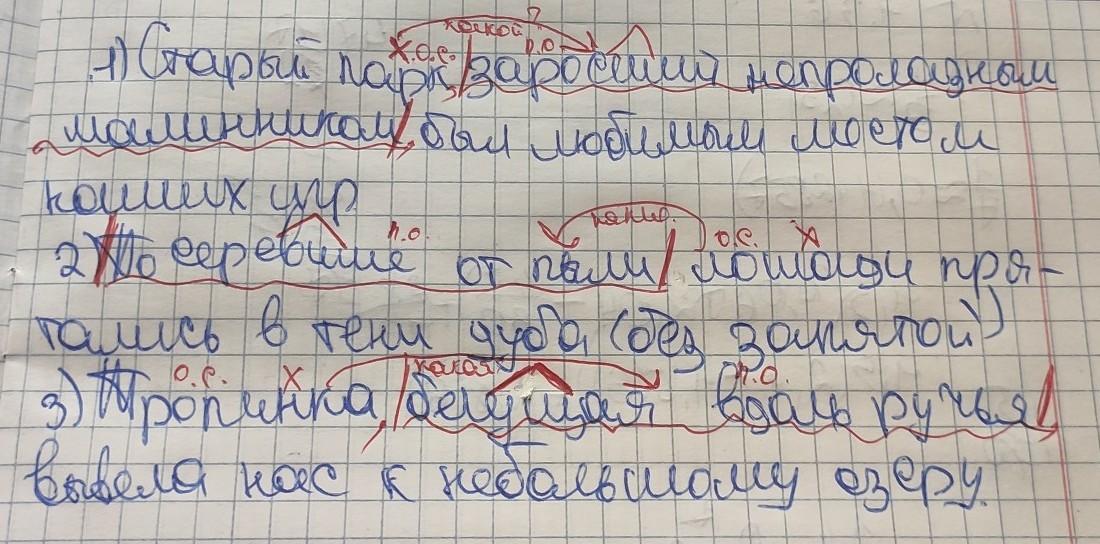 какой?
х о.с. п.о.
1) Старый парк, заросший непролазным
малинником, был любимым местом
наших игр.
какие. п.о. о.с. х
2) Посеревшие от пыли лошади пря-
тались в тени дуба (без запятой)
о.с. х какая п.о.
3) Тропинка, бегущая вдоль ручья,
вывела нас к небольшому озеру.